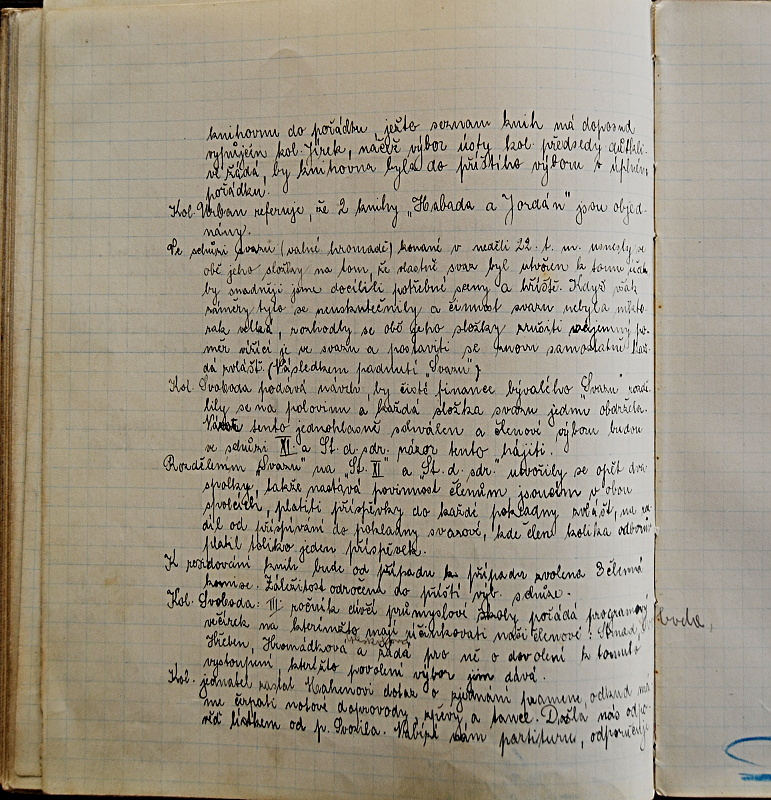 knihovnu do pořádku, ježto seznam knih má doposud
vypůjčen kol. Jirek, načež výbor ústy kol. předsedy důtkli-
vě žádá, by knihovna byla do příštího výboru v úplném
pořádku.
Kol. Urban referuje, že 2 knihy „Habada a Jordán" jsou objed-
nány.
Ve schůzi Svazu (valné hromadě) konané v neděli 22. t. m. usnesly se
obě jeho složky na tom, že vlastně svaz byl utvořen k tomu
by snadněji jsme docílili potřebné sceny a hřiště. Když však
záměry tyto se neuskutečnily a činnost svazu nebyla nikte-
rak velká, rozhodly se obě jeho složky zrušiti vzájemný po-
měr vížící je ve svazu a postaviti se znovu samostatně kaž-
dá zvlášť. (Následkem padnutí „Svazu")
Kol. Svoboda podává návrh, by čisté finance bývalého „Svazu" rozdě-
lily se na polovinu a každá složka svazu jednu obdržela.
Návrh tento jednohlasně schválen a členové výboru budou
ve schůzi XI a St. d. sdr. názor tento hájiti.
Rozdělením „Svazu" na „St. XI" a „St. d. sdr." utvořily se opět dva
spolky, takže nastává povinnost členům jsoucím v obou
spolcích, platiti příspěvky do každé pokladny zvlášť, na roz-
díl od přispívání do pokladny svazové, kde člen kolika odborů
platil toliko jeden příspěvek.
K rozdávání knih bude od případu k případu zvolena 3 členná
komise. Záležitost odročena do příští výb. schůze.
Kol. Svoboda: III. ročník dívčí průmyslové školy pořádá programový
věírek na kterém mají účinkovati naši členové: Svoboda,
Hřeben, Hromádková a žádá pro ně o dovolení k tomuto
vystoupení, kteréžto povolení výbor jim dává.
Kol. jednatel zaslal Hahenovi dotaz o zjednání pramene, odkud má-
me čerpati notové doprovody, zpěvy a tance. Došla nás odpo-
věď lístkem od p. Svozila. Nabízí nám partituru, odporučuje